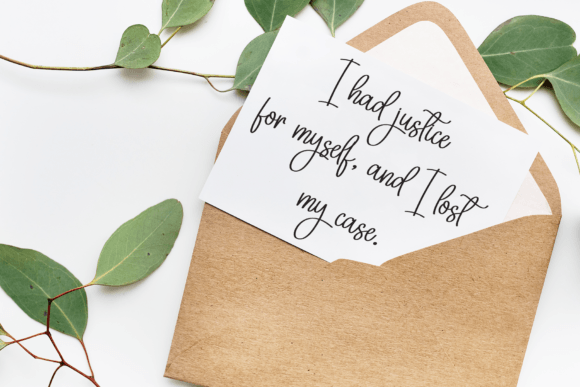 I had justice
for myself, and I lost
my case.